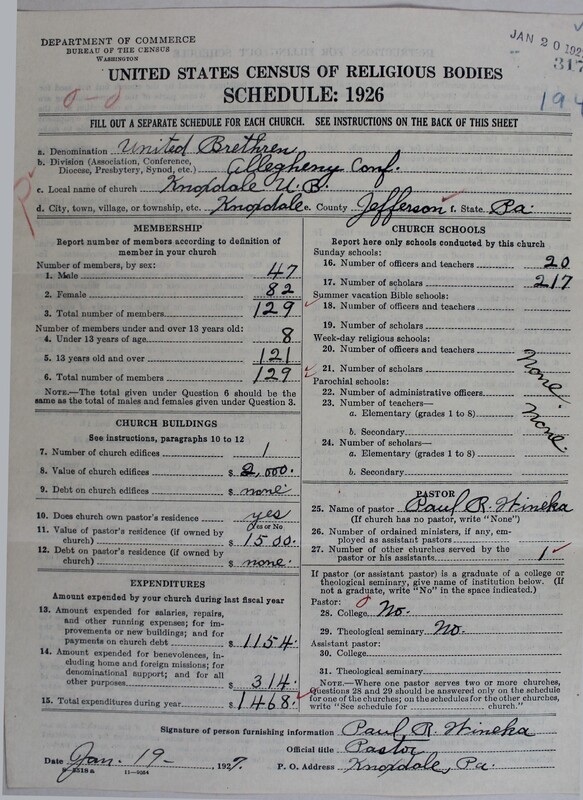 DEPARTMENT OF COMMERCE
BUREAU OF THE CENSUS
WASHINGTON
JAN 20 192
317
194
UNITED STATES CENSUS OF RELIGIOUS BODIES
SCHEDULE: 1926
FILL OUT A SEPARATE SCHEDULE FOR EACH CHURCH. SEE INSTRUCTIONS ON THE BACK OF THIS SHEET
a. Denomination United Brethren
b. Division (Association, Conference, Diocese, Presbytery, Synod, etc.) Allegheny Conf.
c. Local name of church Knoxdale U.B.
d. City, town, village, or township, etc. Knoxdale e. County Jefferson f. State Pa.
MEMBERSHIP
Report number of members according to definition of
member in your church
Number of members, by sex:
1. Male 47
2. Female 82
3. Total number of members 129
Number of members under and over 13 years old:
4. Under 13 years of age 8
5. 13 years old and over 121
6. Total number of members 129
NOTE.—The total given under Question 6 should be
the same as the total of males and females given under Question 3.
CHURCH BUILDINGS
See instructions, paragraphs 10 to 12
7. Number of church edifices 1
8. Value of church edifices $ 2,000.
9. Debt on church edifices $ none
10. Does church own pastor's residence yes
Yes or No
11. Value of pastor's residence (if owned by
church) $ 1500.
12. Debt on pastor's residence (if owned by
church) $ none.
EXPENDITURES
Amount expended by your church during last fiscal year
13. Amount expended for salaries, repairs,
and other running expenses; for im-
provements or new buildings; and for
payments on church debt $ 1154.
14. Amount expended for benevolences, in-
cluding home and foreign missions; for
denominational support; and for all
other purposes $ 314.
15. Total expenditures during year $ 1468.
CHURCH SCHOOLS
Report here only schools conducted by this church
Sunday schools:
16. Number of officers and teachers 20
17. Number of scholars 217
Summer vacation Bible schools:
18. Number of officers and teachers
19. Number of scholars
Week-day religious schools:
20. Number of officers and teachers
21. Number of scholars None.
Parochial schools:
22. Number of administrative officers
23. Number of teachers—
a. Elementary (grades 1 to 8) None.
b. Secondary
24. Number of scholars—
a. Elementary (grades 1 to 8)
b. Secondary
PASTOR
25. Name of pastor Paul R. Wineka
(If church has no pastor, write "None")
26. Number of ordained ministers, if any, em-
ployed as assistant pastors
27. Number of other churches served by the
pastor or his assistants 1
If pastor (or assistant pastor) is a graduate of a college or
theological seminary, give name of institution below. (If
not a graduate, write "No" in the space indicated.)
Pastor:
28. College No.
29. Theological seminary No.
Assistant pastor:
30. College
31. Theological seminary
NOTE.—Where one pastor serves two or more churches,
Questions 28 and 29 should be answered only on the schedule
for one of the churches; on the schedules for the other churches,
write "See schedule for church."
Signature of person furnishing information Paul R. Wineka
Official title Pastor
Date Jan. 19—, 1927. P. O. Address Knoxdale, Pa.
11—9284